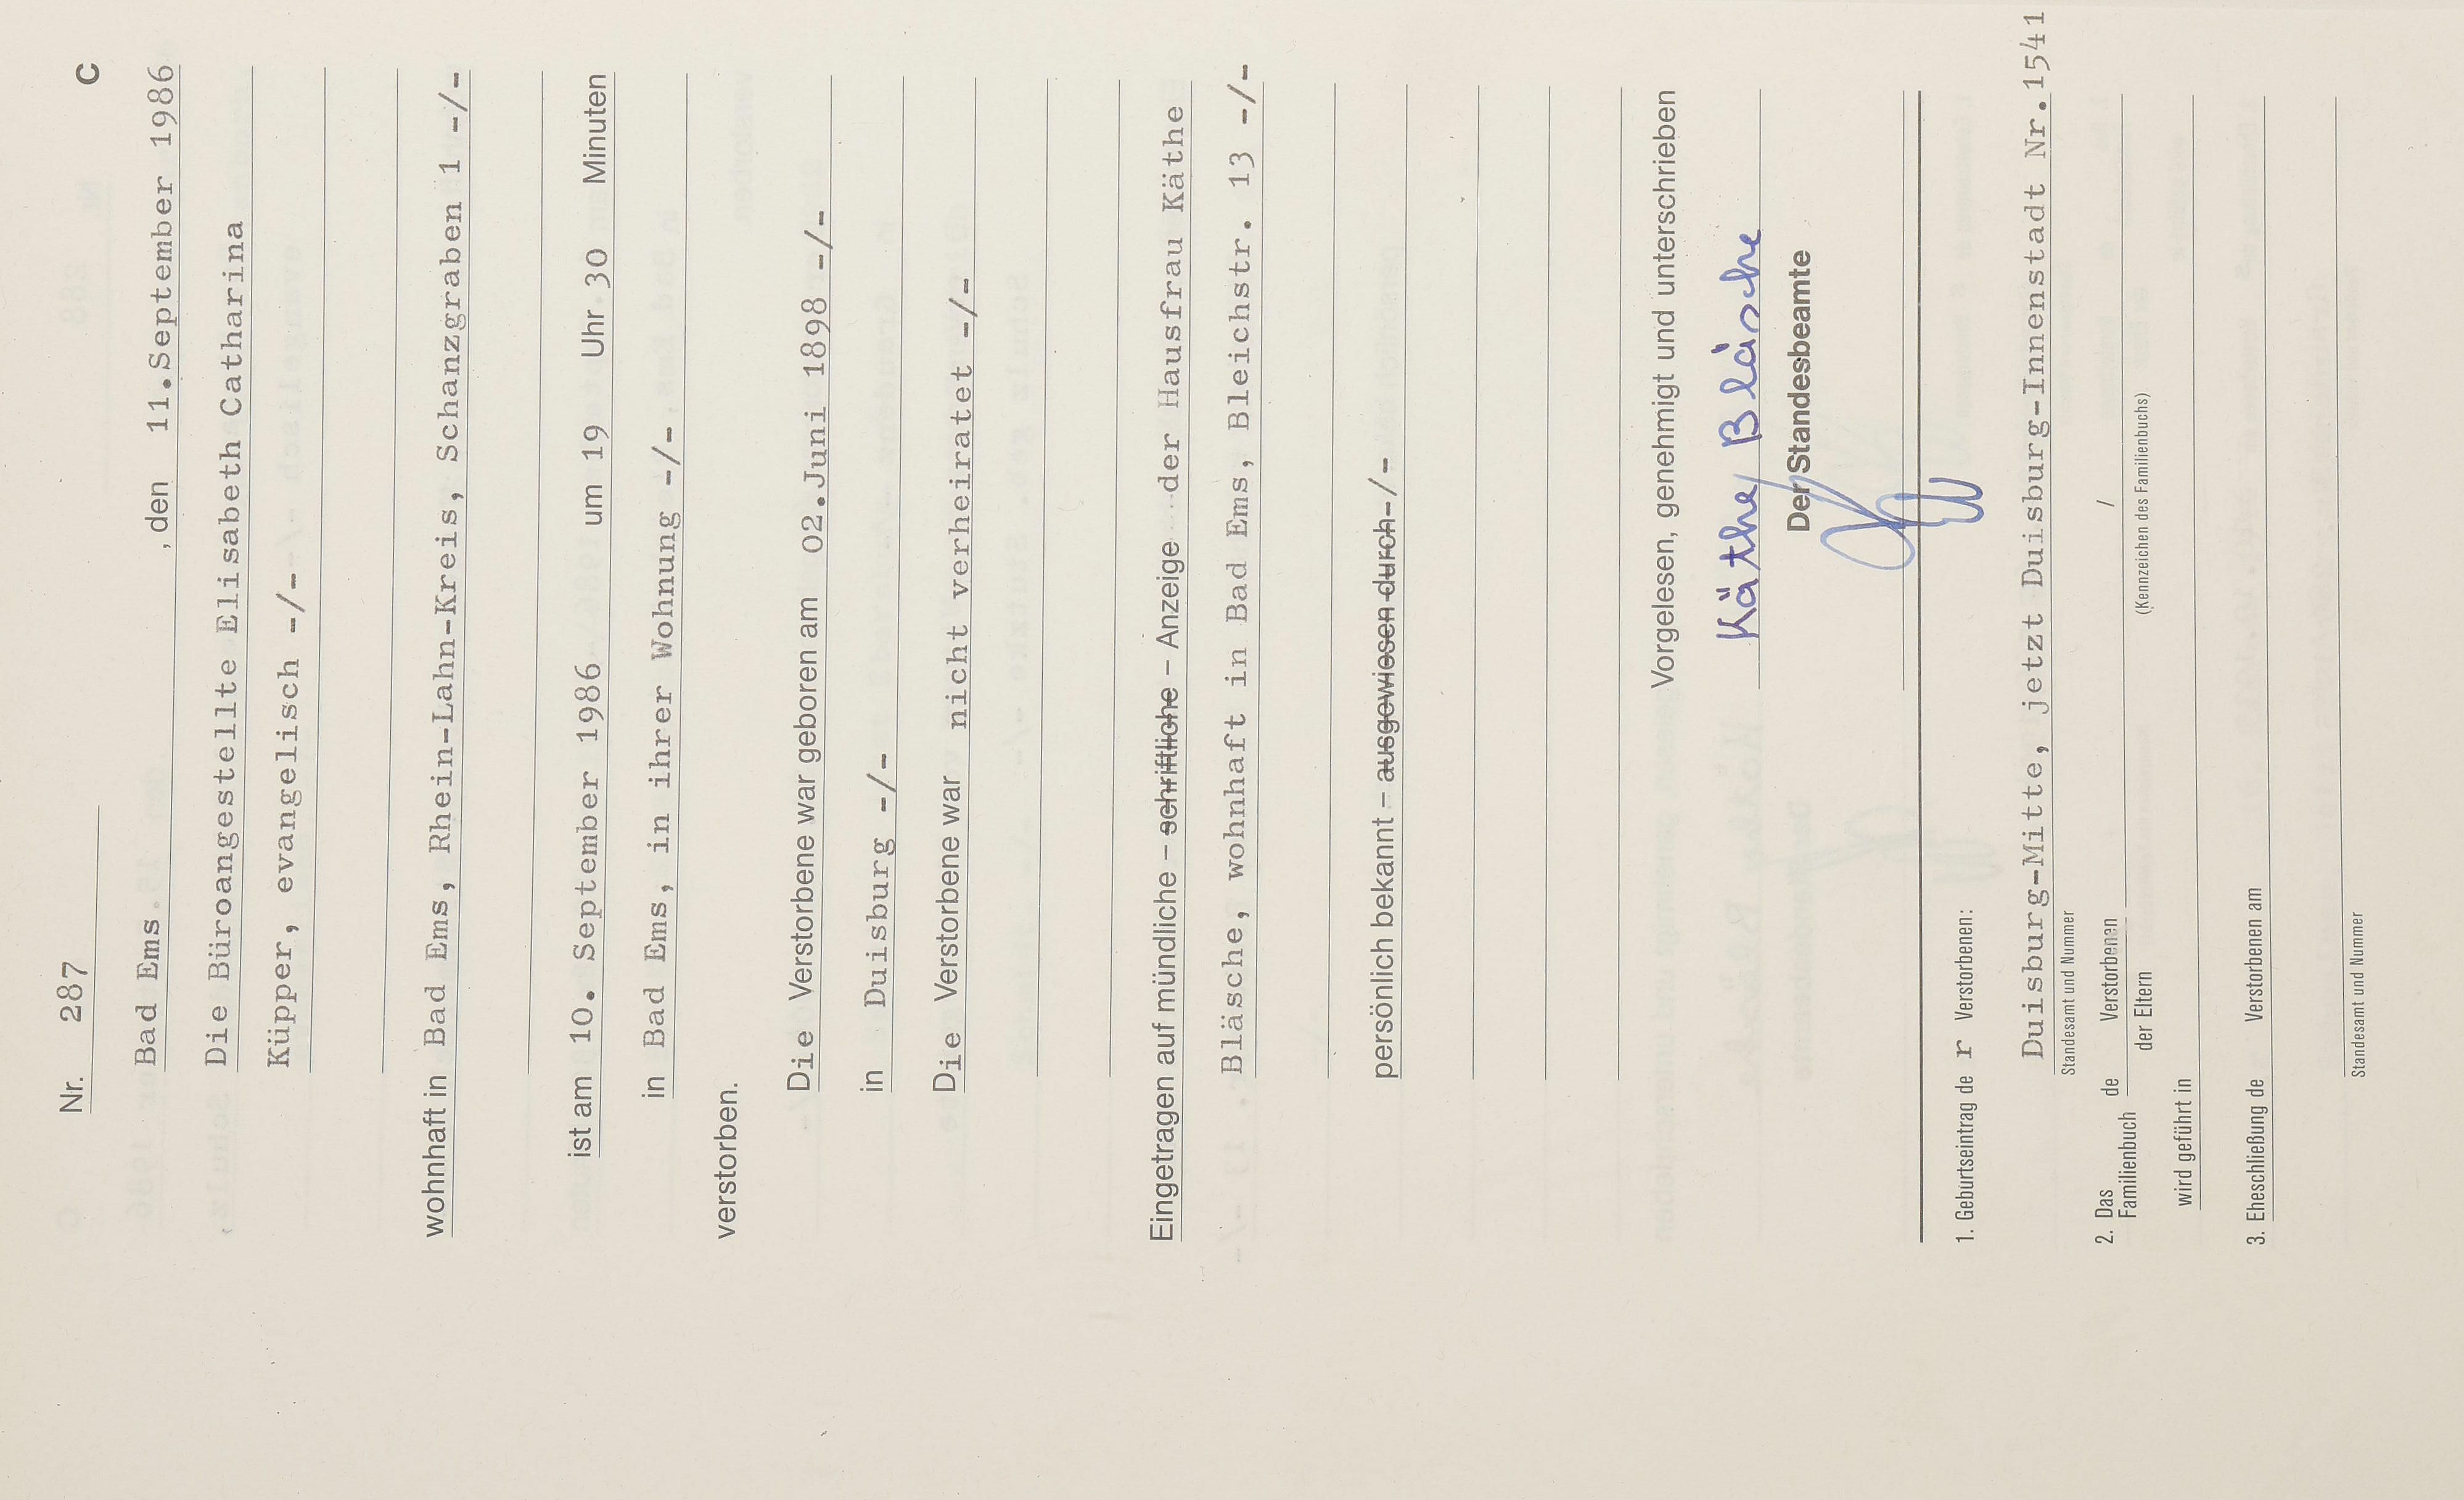 Nr. 287 C
Bad Ems , den 11.September 1986
Die Büroangestellte Elisabeth Catharina
Küpper, evangelisch -/-
wohnhaft in Bad Ems, Rhein-Lahn-Kreis, Schanzgraben 1 -/-
ist am 10. September 1986 um 19 Uhr 30 Minuten
in Bad Ems, in ihrer Wohnung -/-
verstorben.
Die Verstorbene war geboren am 02.Juni 1898 -/-
in Duisburg -/-
Die Verstorbene war nicht verheiratet -/-
Eingetragen auf mündliche – schriftliche – Anzeige der Hausfrau Käthe
Bläsche, wohnhaft in Bad Ems, Bleichstr. 13 -/-
persönlich bekannt – ausgewiesen durch -/-
Vorgelesen, genehmigt und unterschrieben
Käthe Bläsche
Der Standesbeamte
1. Geburtseintrag de r Verstorbenen:
Duisburg-Mitte, jetzt Duisburg-Innenstadt Nr.1541
Standesamt und Nummer
2. Das Familienbuch de Verstorbenen /
der Eltern (Kennzeichen des Familienbuchs)
wird geführt in
3. Eheschließung de Verstorbenen am
Standesamt und Nummer